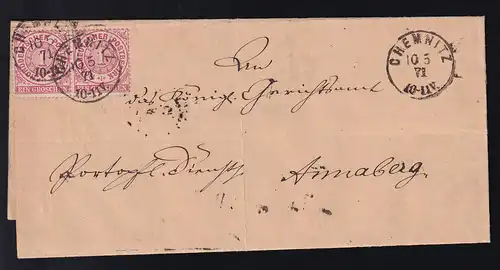 CHEMNITZ
10 5
71
10-11V.
CHEMNITZ
10 5
71
10-11V.
1
EIN GROSCHEN
An
das Königl. Gerichtsamt
Portopfl. Dienstss.
Annaberg